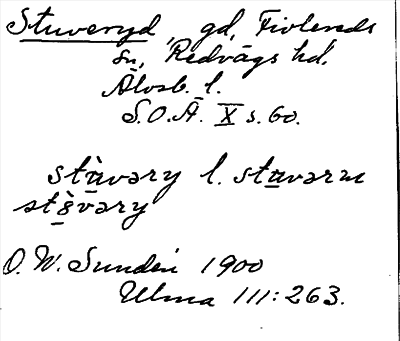 Stuveryd, gd, Finlereds
sn, Redvägs hd.
Älvsb. l.
S.O.Ä. X s. 60.
stàvəry l. stavərn
stɞ̀vəry
O. W. Sundén 1900
Ulma 111:263.